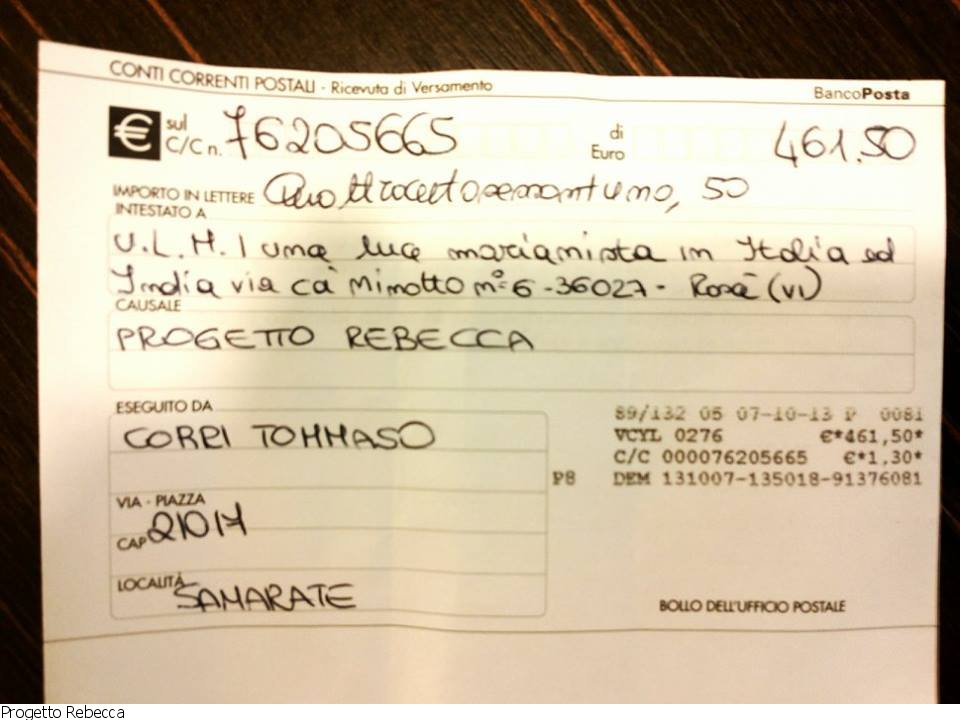 CONTI CORRENTI POSTALI - Ricevuta di Versamento
BancoPosta
€ sul C/C n. 76205665 di Euro 461.50
IMPORTO IN LETTERE Quattrocentosessantuno, 50
INTESTATO A
U.L.M.I una luce marianista in Italia ed
India via cà Minotto n° 6 - 36027 - Rosà (VI)
CAUSALE
PROGETTO REBECCA
ESEGUITO DA
CORRI TOMMASO
VIA - PIAZZA
CAP 21017
LOCALITÀ SAMARATE
89/132 05 07-10-13 P 0081
VCYL 0276 €*461,50*
C/C 000076205665 €*1,30*
P8 DEM 131007-135018-91376081
BOLLO DELL'UFFICIO POSTALE
Progetto Rebecca